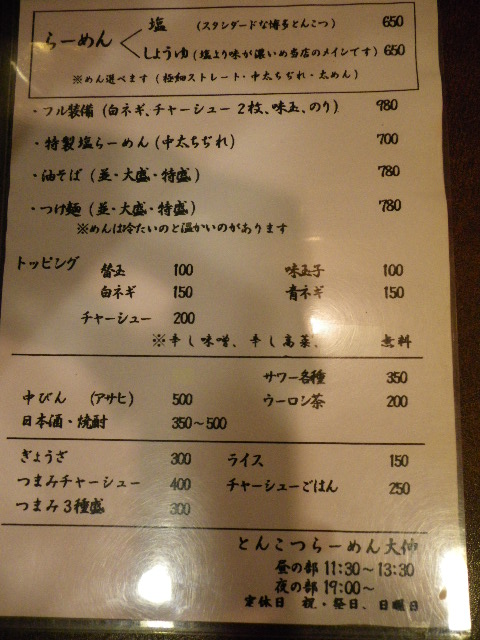 らーめん
塩 (スタンダードな博多とんこつ) 650
しょうゆ (塩より味が濃いめ当店のメインです) 650
※めん選べます (極細ストレート・中太ちぢれ・太めん)
・フル装備 (白ネギ、チャーシュー2枚、味玉、のり) 980
・特製塩らーめん (中太ちぢれ) 700
・油そば (並・大盛・特盛) 780
・つけ麺 (並・大盛・特盛) 780
※めんは冷たいのと温かいのがあります
トッピング
替玉 100 味玉子 100
白ネギ 150 青ネギ 150
チャーシュー 200
※辛し味噌、辛し高菜、 無料
サワー各種 350
中びん (アサヒ) 500 ウーロン茶 200
日本酒・焼酎 350~500
ぎょうざ 300 ライス 150
つまみチャーシュー 400 チャーシューごはん 250
つまみ3種盛 300
とんこつらーめん大仲
昼の部 11:30~13:30
夜の部 19:00~
定休日 祝・祭日、日曜日